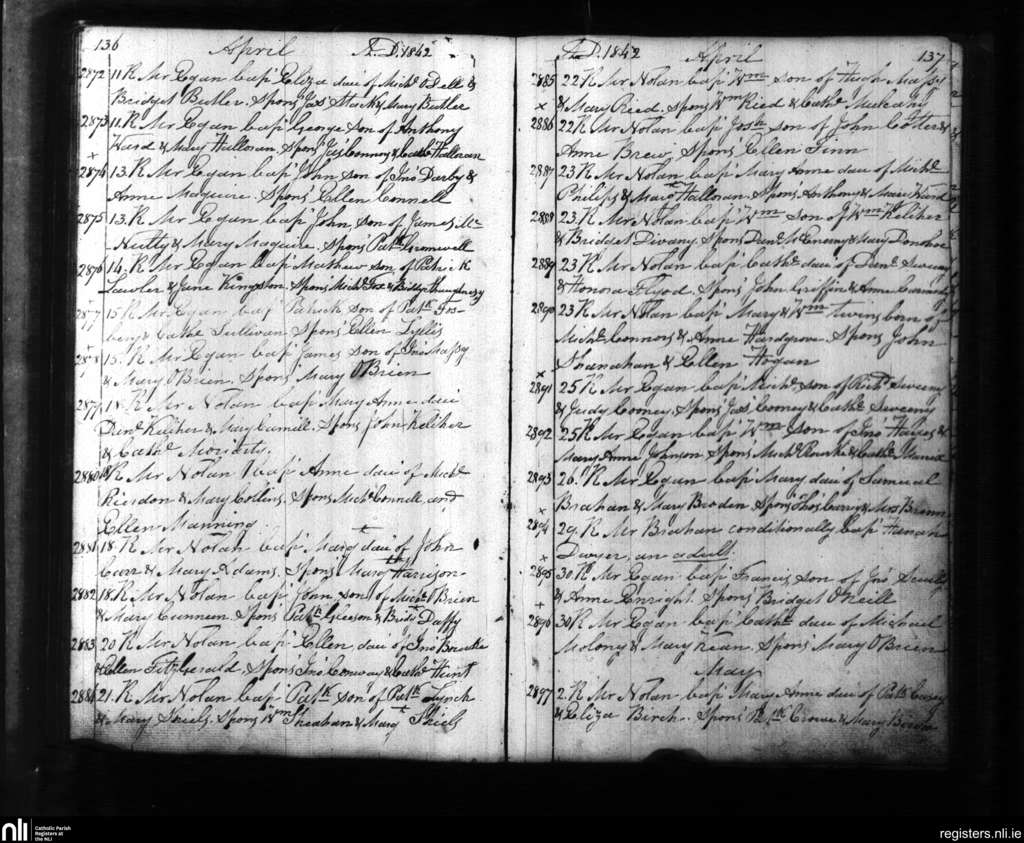 136 April A.D. 1842
2872 11. R Mr Egan bap' Eliza dau of Michl Dell &
Bridget Butler. Spons Jas Stack & Mary Butler
2873 11. R Mr Egan bap' George son of Anthony
Hard & Mary Halloran. Spon' Jas Connory & Cathe Halloran
+
2874 13. R Mr Egan bap' John son of Jno Darby &
Anne Maguire. Spons Ellen Connell
2875 13. R Mr Egan bap' John son of James Mc
Nulty & Mary Maguire. Spons Patk Gromwell
2876 14. R Mr Egan bap' Mathew son of Patrick
Lawler & Jane Kingston. Spons Michl Fox & Bridgt
2877 15 R Mr Egan bap' Patrick son of Patk
& Cathe Sullivan Spons Ellen
2878 15. R Mr Egan bap' James son of Jno Massy
& Mary O'Brien. Spons Mary O'Brien
2879 18. R Mr Nolan bap' Mary Anne dau
Danl Keliher & Mary. Spons John Keliher
& Cathe Moriarty.
2880 18 R Mr Nolan bap' Anne dau of Michl
Riordon & Mary Collins. Spons Michl Connell and
Ellen Manning
2881 18. R Mr Nolan bap' Marg dau of John
Carr & Mary Adams. Spons Marg Harrison
2882 18. R Mr Nolan bap' John son of Michl O'Brien
& Mary Cunneen Spons Patk Gleeson & Bridt Daffy
2883 20 R Mr Nolan bap' Ellen dau of Jno Bourke
& Ellen Fitzgerald. Spons Jno Conway & Cathe Hunt
2884 21. R Mr Nolan bap' Patk son of Patk Lynch
& Mary Shiels. Spons Wm Sheahan & Marg Shiels
A.D. 1842 April 137
2885 22 R Mr Nolan bap' Wm son of Hugh Massy
x & Mary Ried. Spons Wm Ried & Cathe Mulcahy
2886 22 R Mr Nolan bap' Josh son of John Cotter &
Anne Brew. Spons Ellen Finn
2887 23 R Mr Nolan bap' Mary Anne dau of Michl
Philips & Marg Halloran. Spons Anthony & Mary Hard
2888 23. R Mr Nolan bap' Wm son of Wm Keliher
& Bridget Divany. Spons Danl McEnerny & Mary Donohoe
2889 23 R Mr Nolan bap' Cathe dau of Danl Sweeny
& Honora Flyod. Spons John Griffin & Anne
2890 23 R Mr Nolan bap' Mary & Wm twins born of
Michl Connors & Anne Hardgrove. Spons John
Shanahan & Ellen Hogan
x
2891 25 R Mr Egan bap' Michl son of Richd Sweeny
& Judy Cooney. Spons Jas Cooney & Cathe Sweeny
2892 25 R Mr Egan bap' Wm son of Jno Hayes &
Mary Anne Johnson. Spons Michl Rourke & Cathe
2893 26. R Mr Egan bap' Mary dau of Samuel
x Brahan & Mary Broden. Spons Thos Barry & Mrs Brown
2894 29. R Mr Brahan conditionally bap' Hanah
+ Dwyer, an adult.
2895 30. R Mr Egan bap' Francis son of Jno Scully
+ & Anne Enright. Spons Bridget O'Neill
2896 30 R Mr Egan bap' Cathe dau of Michael
Molony & Mary Kean. Spons Mary O'Brien
May
2897 2. R Mr Nolan bap' Mary Anne dau of Patk Casey
& Eliza Birch. Spons Patk Crowe & Mary Brown
nli Catholic Parish
Registers at
the NLI
registers.nli.ie